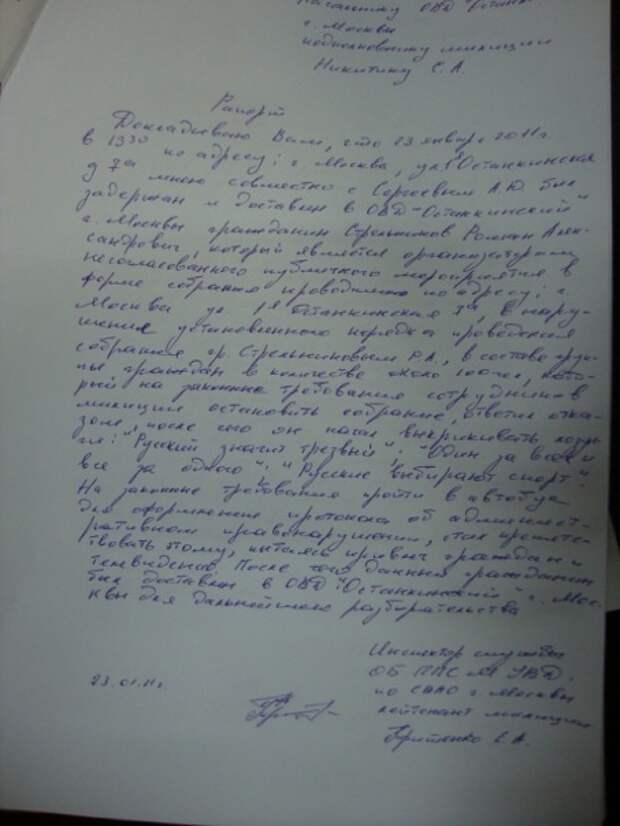 Начальнику ОВД "Останк
г. Москвы
подполковнику милиции
Никитину С. А.
Рапорт
Докладываю Вам, что 23 января 2011г
в 1330 по адресу: г. Москва, ул. 1я Останкинская
д 7а мною совместно с Сергеевым А.Ю. был
задержан и доставлен в ОВД "Останкинский"
г. Москвы гражданин Стрельников Роман Алек-
сандрович, который является организатором
несогласованного публичного мероприятия в
форме собрания проводимого по адресу: г.
Москва ул 1я Останкинская 7а, в нару-
шения установленного порядка проведения
собрания гр. Стрельниковым Р.А., в составе груп-
пы граждан в количестве около 100чел, кото-
рый на законные требования сотрудников
милиции остановить собрание, ответил отка-
зом, после чего он начал выкрикивать лозун-
ги: "Русский значит трезвый"; "Один за всех и
все за одного"; "Русские выбирают спорт".
На законные требования пройти в автобус
для оформления протокола об админист-
ративном правонарушении, стал препятс-
твовать этому, пытаясь привлеч граждан и
телевидение. После чего данный гражданин
был доставлен в ОВД "Останкинский" г. Мос-
квы для дальнейшего разбирательства
Инспектор службы
23.01.11г. ОБ ППСМ УВД
по СВАО г Москвы
лейтенант милиции
Е. А.